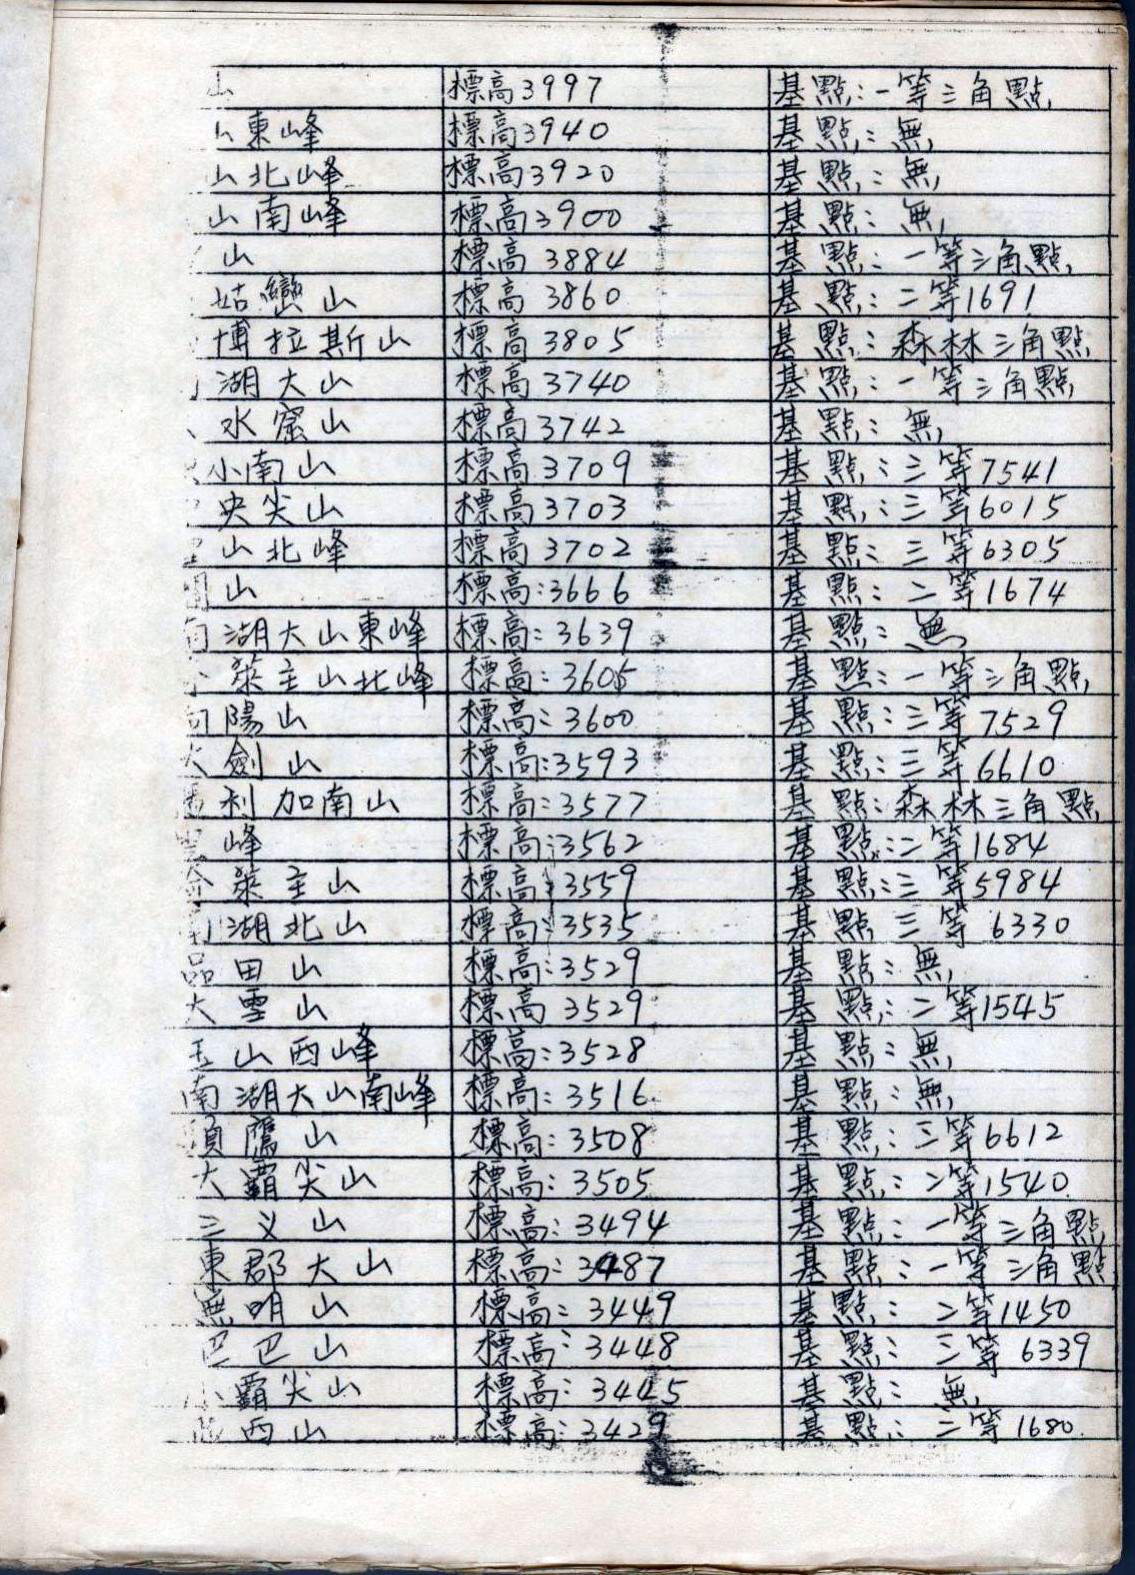 山 標高3997 基點:一等三角點
山東峰 標高3940 基點:無
山北峰 標高3920 基點:無
山南峰 標高3900 基點:無
山 標高3884 基點:一等三角點
姑巒山 標高3860 基點:二等1691
博拉斯山 標高3805 基點:森林三角點
湖大山 標高3740 基點:一等三角點
水窟山 標高3742 基點:無
小南山 標高3709 基點:三等7541
央尖山 標高3703 基點:三等6015
山北峰 標高3702 基點:三等6305
山 標高:3666 基點:二等1674
南湖大山東峰 標高:3639 基點:無
萊主山北峰 標高:3605 基點:一等三角點
向陽山 標高:3600 基點:三等7529
大劍山 標高:3593 基點:三等6610
利加南山 標高:3577 基點:森林三角點
峰 標高:3562 基點:二等1684
萊主山 標高:3559 基點:三等5984
湖北山 標高:3535 基點 三等 6330
品田山 標高:3529 基點:無
大雪山 標高 3529 基點:二等1545
玉山西峰 標高:3528 基點:無
南湖大山南峰 標高:3516 基點:無
頭鷹山 標高:3508 基點:三等6612
大霸尖山 標高:3505 基點:二等1540
三义山 標高:3494 基點:一等三角點
東郡大山 標高:3487 基點:一等三角點
無明山 標高:3449 基點:二等1450
巴巴山 標高:3448 基點:三等 6339
小霸尖山 標高:3445 基點:無
西山 標高:3429 基點:二等1680